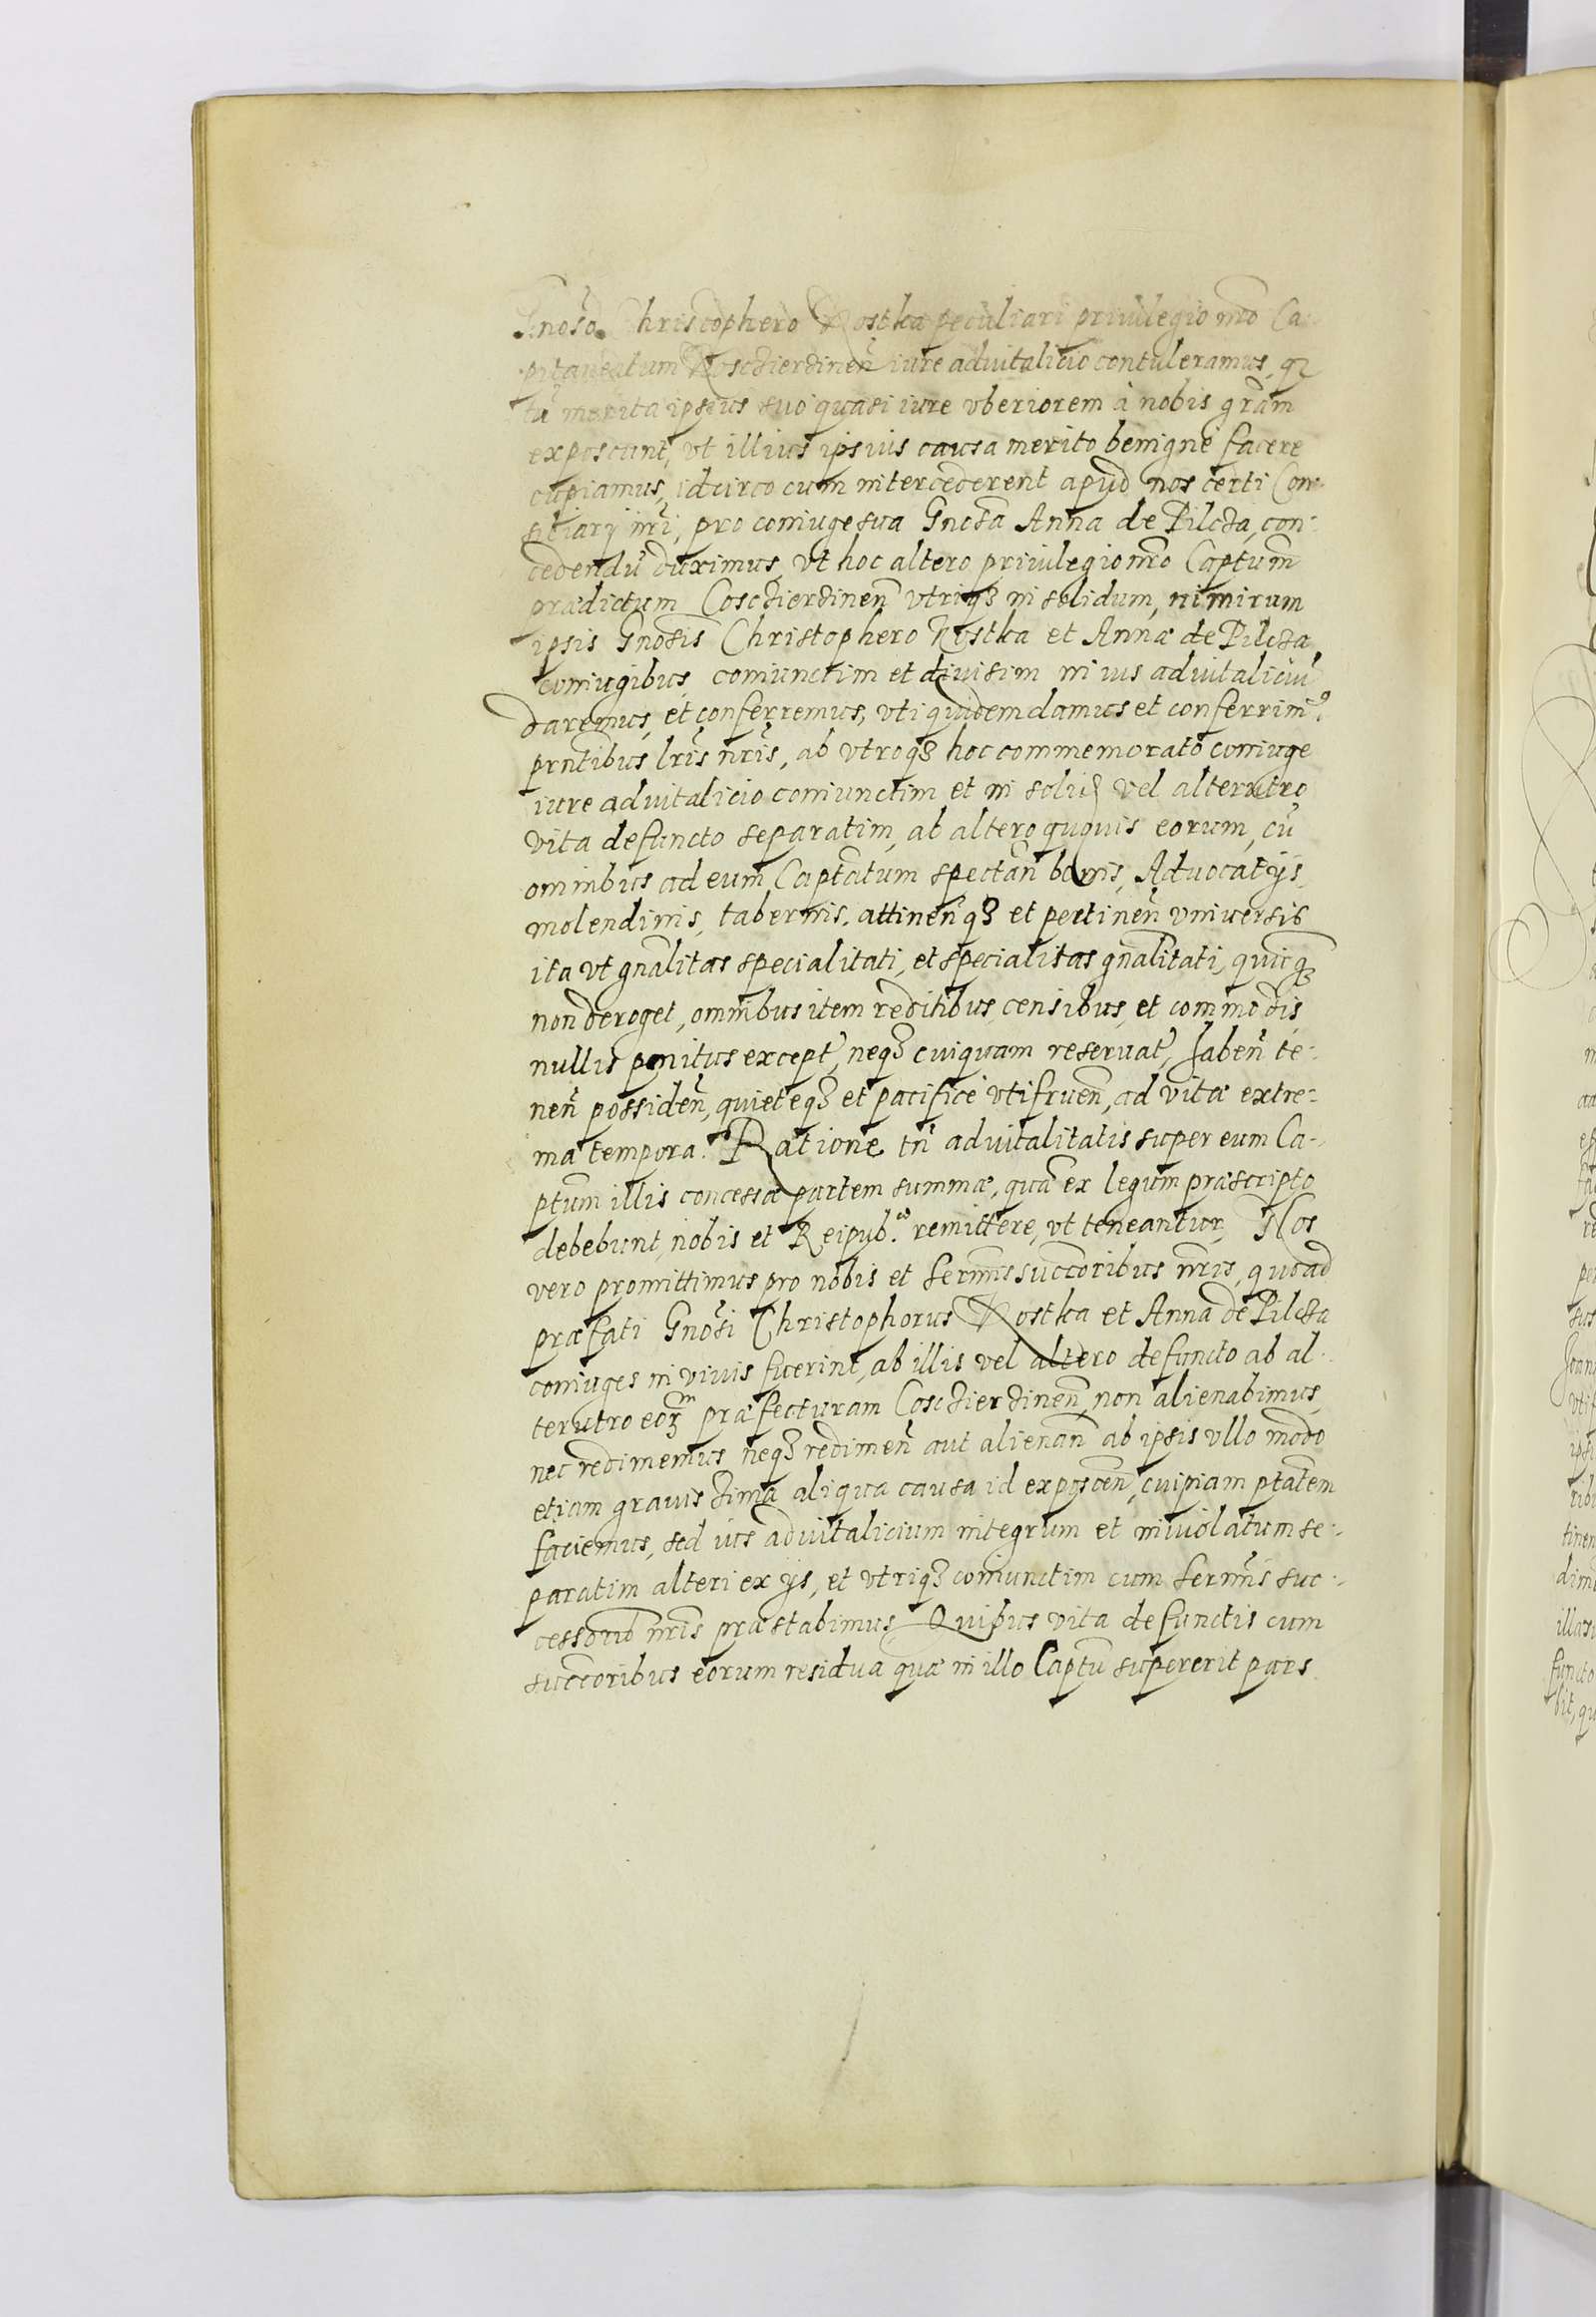 Gnoso Christophero Kostka peculiari priuilegio nro Ca-
pitaneatum Koscierzinen̄ iure aduitalicio contuleramus, qz
tū merita ipsius suo quasi iure vberiorem à nobis grãm
exposcant, vt illius ipsius causa merito benigne facere
cupiamus, idcirco cum intercederent apud nos certi Con-
siliarij nri, pro coniuge sua Gnosa Anna de Pilcza, con-
cedendū duximus, vt hoc altero priuilegio nro Captum
prædictum Coscierzinen̄ vtriqȝ in solidum, nimirum
ipsis Gnosis Christophero Kostka et Annæ de Pilcza
coniugibus, coniunctim et diuisim in ius aduitaliciū
daremus, et conferremus, vti quidem damus et conferrimꝰ
prntibus lris nris, ab vtroqȝ hoc commemorato coniuge
iure aduitalicio coniunctim et in solid vel alterutro
vita defuncto separatim, ab altero quouis eorum, cū
omnibus ad eum Captatum spectan̄ bonis, Aduocatijs,
molendinis, tabernis, attinen̄qȝ et pertinen̄ vniuersis
ita vt gnalitas specialitati, et specialitas gnalitati, quicqȝ
non deroget, omnibus item reditibus, censibus, et commodis
nullis penitus except, neqȝ cuiquam reseruat, haben̄ te-
nen̄ possiden̄, quieteqȝ et pacifice vtifruen̄, ad vitæ extre-
ma tempora. Ratione tn̄ aduitalitatis super eum Ca-
ptum illis concessæ partem summæ, quā ex legum præscripto
debebunt nobis et Reipub. remittere, vt teneantur, Nos
vero promittimus pro nobis et Sermis succoribus nris, quoad
præfati Gnosi Christophorus Kostka et Anna de Pilcza
coniuges in viuis fuerint, ab illis vel altero defuncto ab al-
terutro eorȝm præfecturam Coscierzinen̄, non alienabimus,
nec redimemus neqȝ redimen̄ aut alienan̄ ab ipsis vllo modo
etiam grauissima aliqua causa id exposcen̄, cuipiam ptatem
faciemus, sed ius aduitalicium integrum et inuiolatum se-
paratim alteri ex ijs, et vtriqȝ coniunctim cum Sermis suc-
cessorib nris præstabimus. Quibus vita defunctis cum
succoribus eorum residua quæ in illo Captu supererit pars